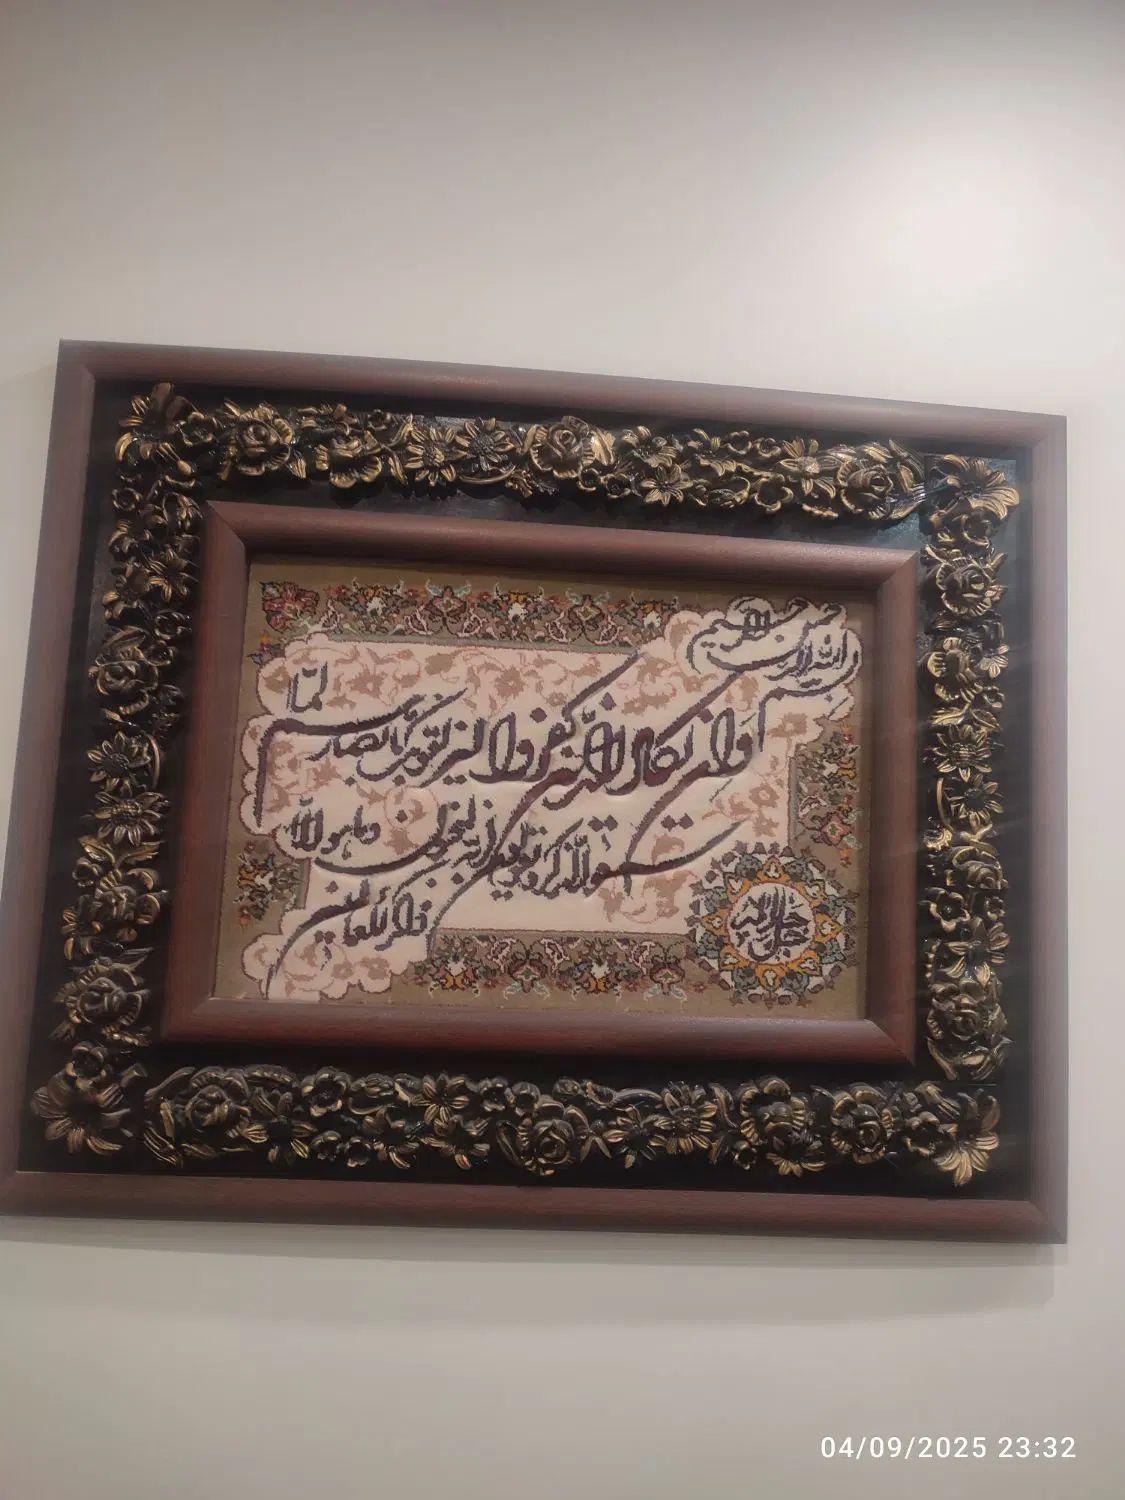 بسم الله الرحمن الرحیم
وان یکاد الذین کفروا لیزلقونک بابصارهم لمّا
سمعوا الذکر ویقولون انه لمجنون وما هو الا
ذکر للعالمین
جل جلاله
04/09/2025 23:32